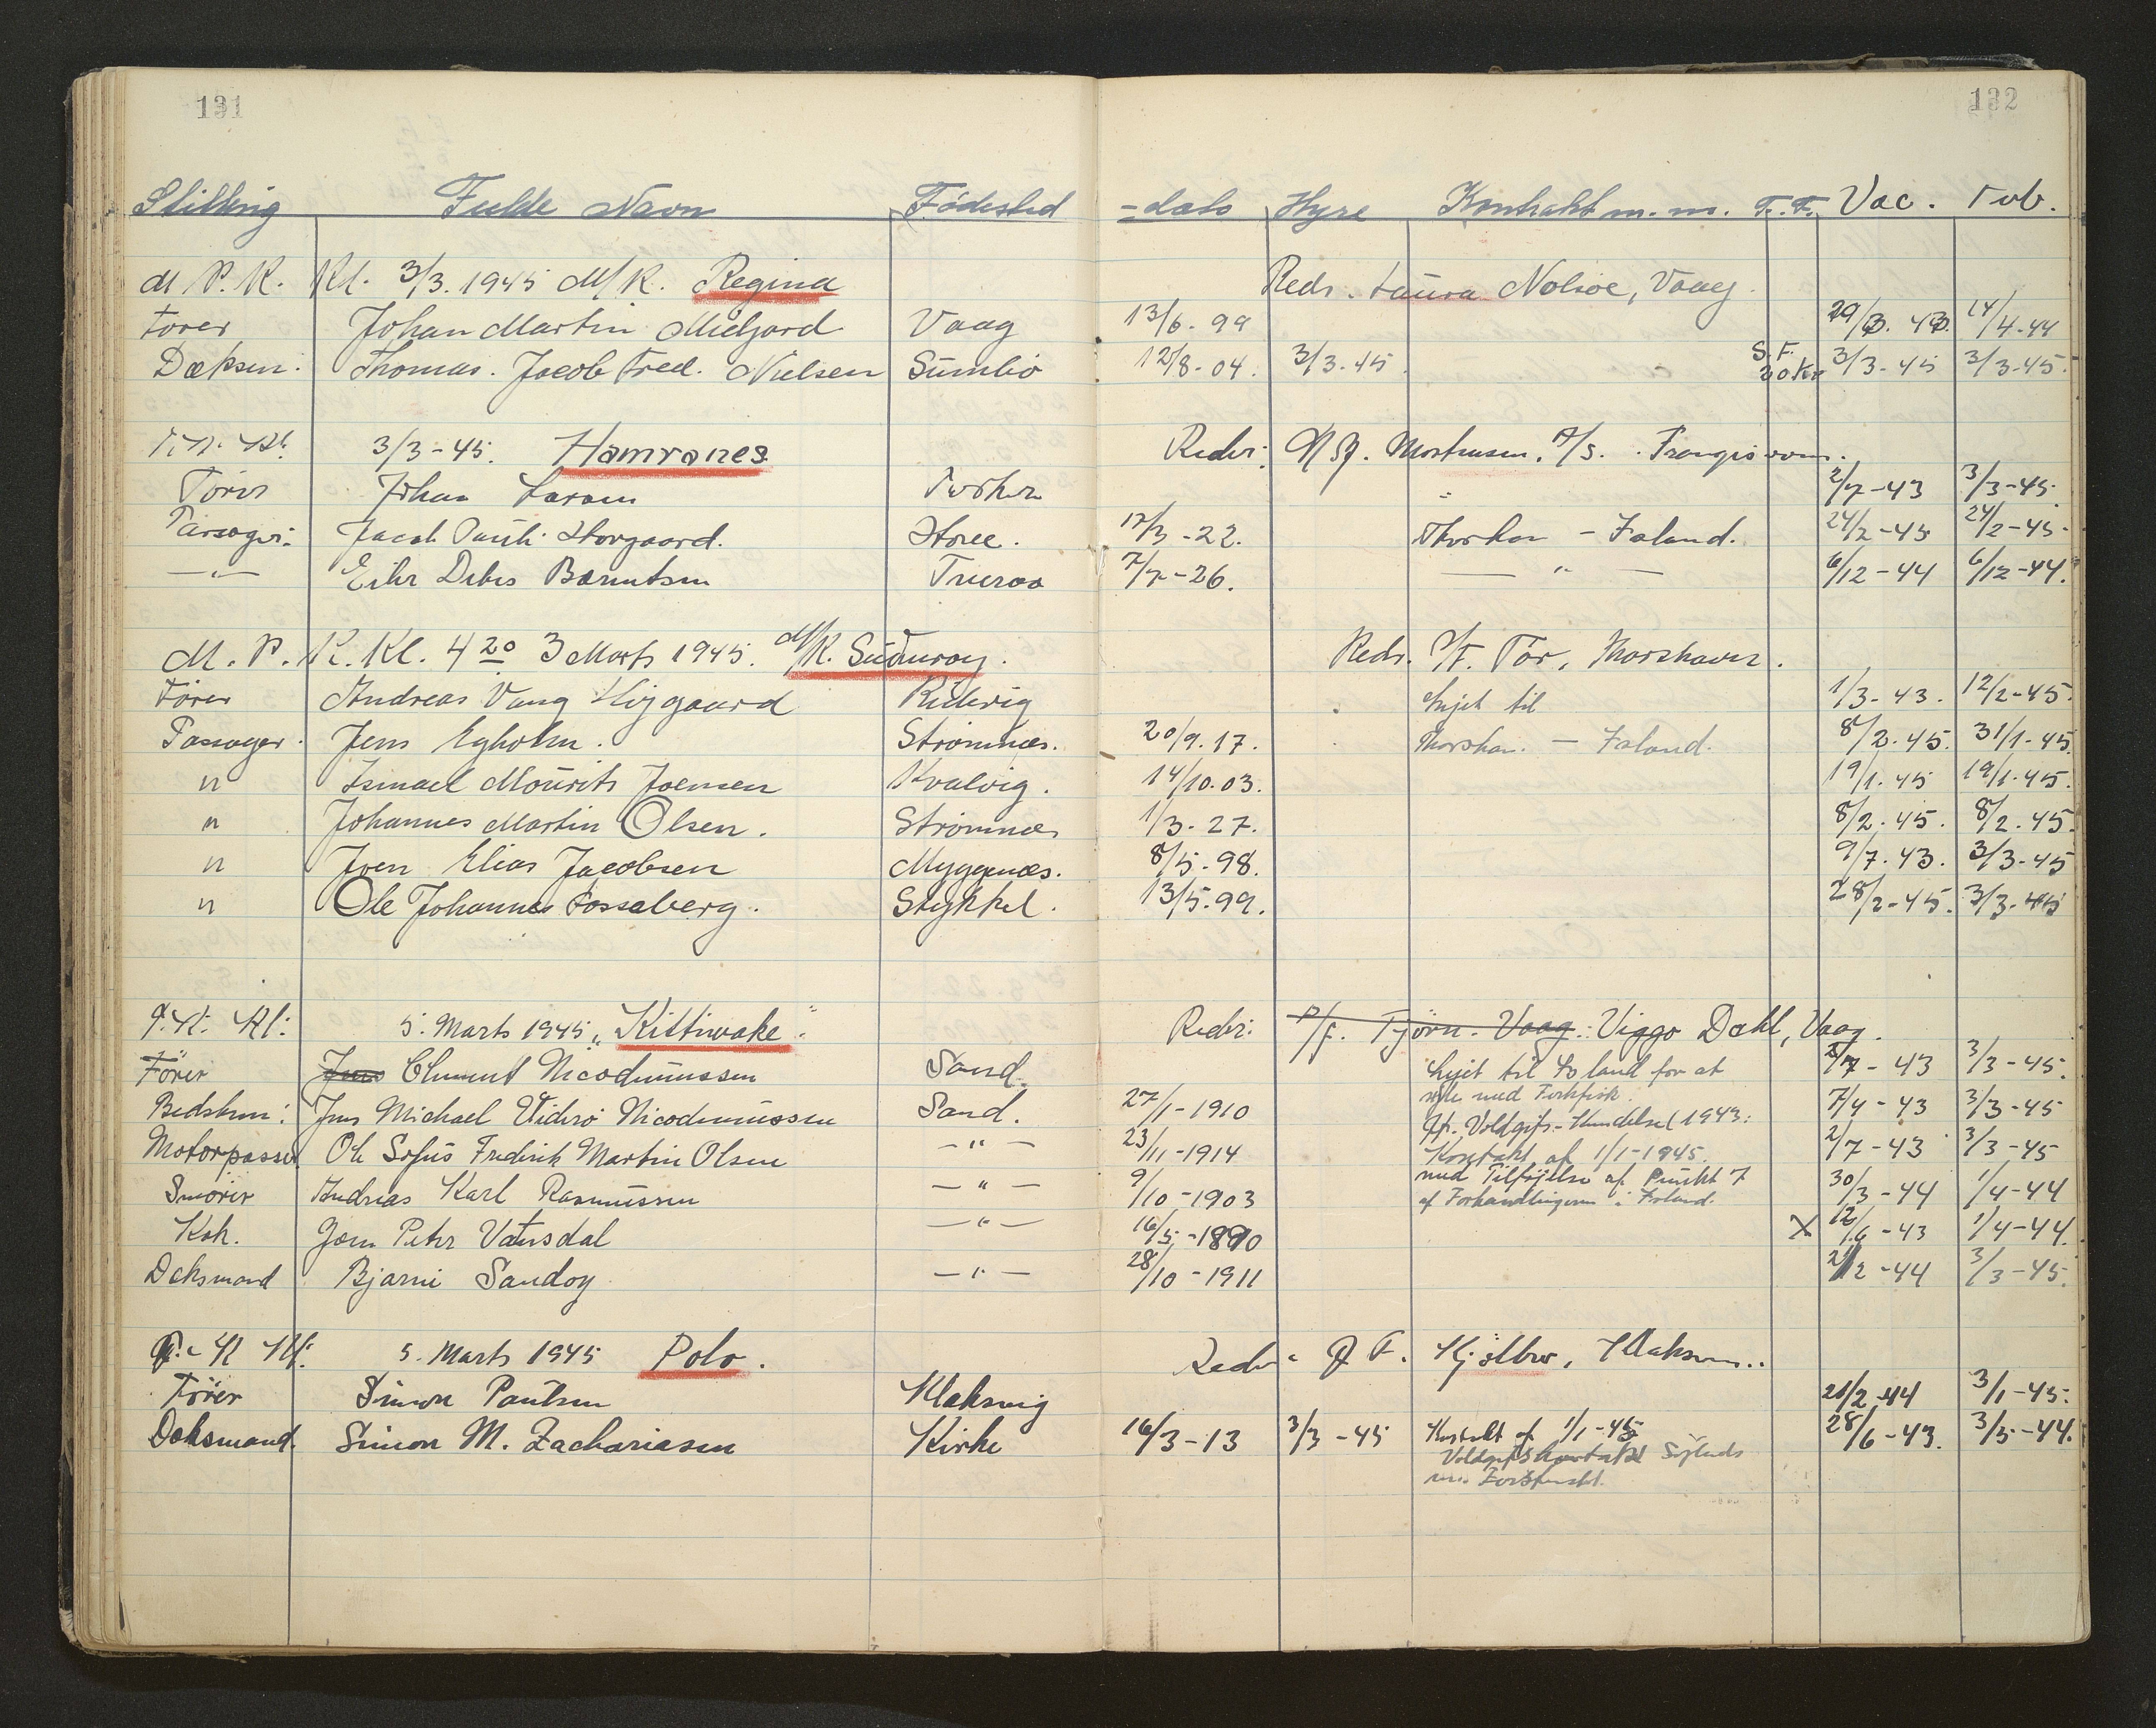 131
132
Stilling Fulde Navn Födested =dato Hyre Kontrakt m.m. T.T. Vac. Tub.
M P. K. Kl. 3/3. 1945 M/K. Regina Redr. Laura Nolsøe, Vaag.
Förer Johan Martin Midjord Vaag 13/6-99 14/4-44
Dæksm: Thomas. Jacob Fred. Nielsen Sumbö 12/8-04. 3/3-45. S.F. 20 Kr 3/3-45 3/3-45.
3/3-45. Hamranes Reder: A/S.
Förer Johan 2/7-43 3/3-45.
Passager: Jacob Pauli Horgaard. 17/3-22. Thorshavn - Island. 24/2-45 24/2-45-
—"— Debes Berentsen 7/7-26. — " — 6/12-44 6/12-44.
M. P. K. Kl. 4 20 3 Marts 1945. M/K. Suduroy. Redr. P/F. Tor, Thorshavn.
Förer Andreas Vang Höjgaard 1/3-43. 12/2-45.
Passager. Jens Egholm. Strømnæs. 20/9.17. Thorshavn. — Island. 8/2-45. 31/1-45.
" Ismael Mourits Joensen Kvalvig. 14/10.03. 19/1.45 19/1.45.
" Johannes Martin Olsen. Strømnæs 1/3-27. 8/2.45. 8/2.45.
" Joen Elias Jacobsen Myggenæs. 8/5.98. 9/7.43. 3/3-45
" Ole Johannes Fossaberg. Stykkel. 13/5.99. 28/2-45. 3/3-45
5. Marts 1945 "Kittiwake" Reder: P/f. Tjörn. Vaag. Viggo Dahl, Vaag.
Förer Jens Clement Nicodemussen Sand. Lejet til Island for at 2/7-43 3/3-45.
Bedstm: Jens Michael Viderö Nicodemussen Sand. 27/1-1910 7/4-43 3/3-45
Motorpasser Ole Sofus Fredrik Martin Olsen —"— 23/11-1914 Kontrakt af 1/1-1945. 2/7-43 3/3-45
Smörer Andrias Karl Rasmussen —"— 9/10-1903 med Tilföjelse af Punkt 7 30/3-44 1/4-44
af Forhandlingerne i Island.
Kok. Joen Peter Vatnsdal —"— 16/5-1890 X 12/6-43 1/4-44
Dæksmand Bjarni Sandoy —"— 28/10-1911 3/3-45.
5. Marts 1945 Polo. Reder: J. F. Kjölbro, Klaksvig.
Förer Simon Poulsen Klaksvig 3/1-45.
Dæksmand. Simon M. Zachariasen Kirke 16/3-13 3/3-45 Kontrakt af 1/1-45 28/6-43. 3/5-44.